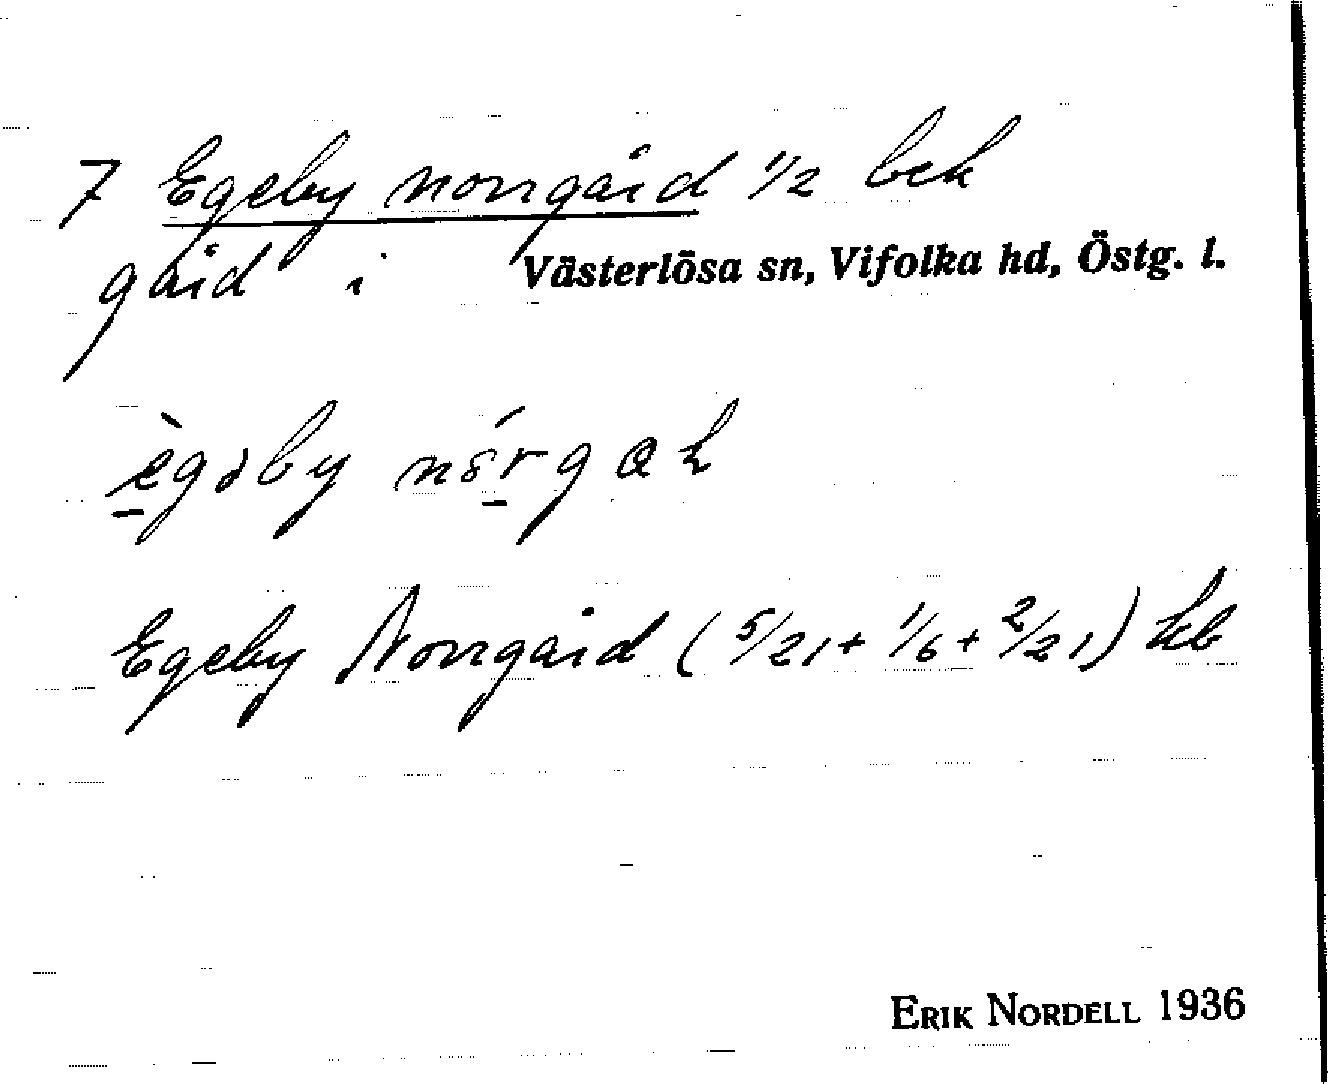 7 Egeby norrgård 1/2 bek
gård i Västerlösa sn, Vifolka hd, Östg. l.
Egeby Norrgård (5/21 + 1/6 + 2/21) kb
ERIK NORDELL 1936